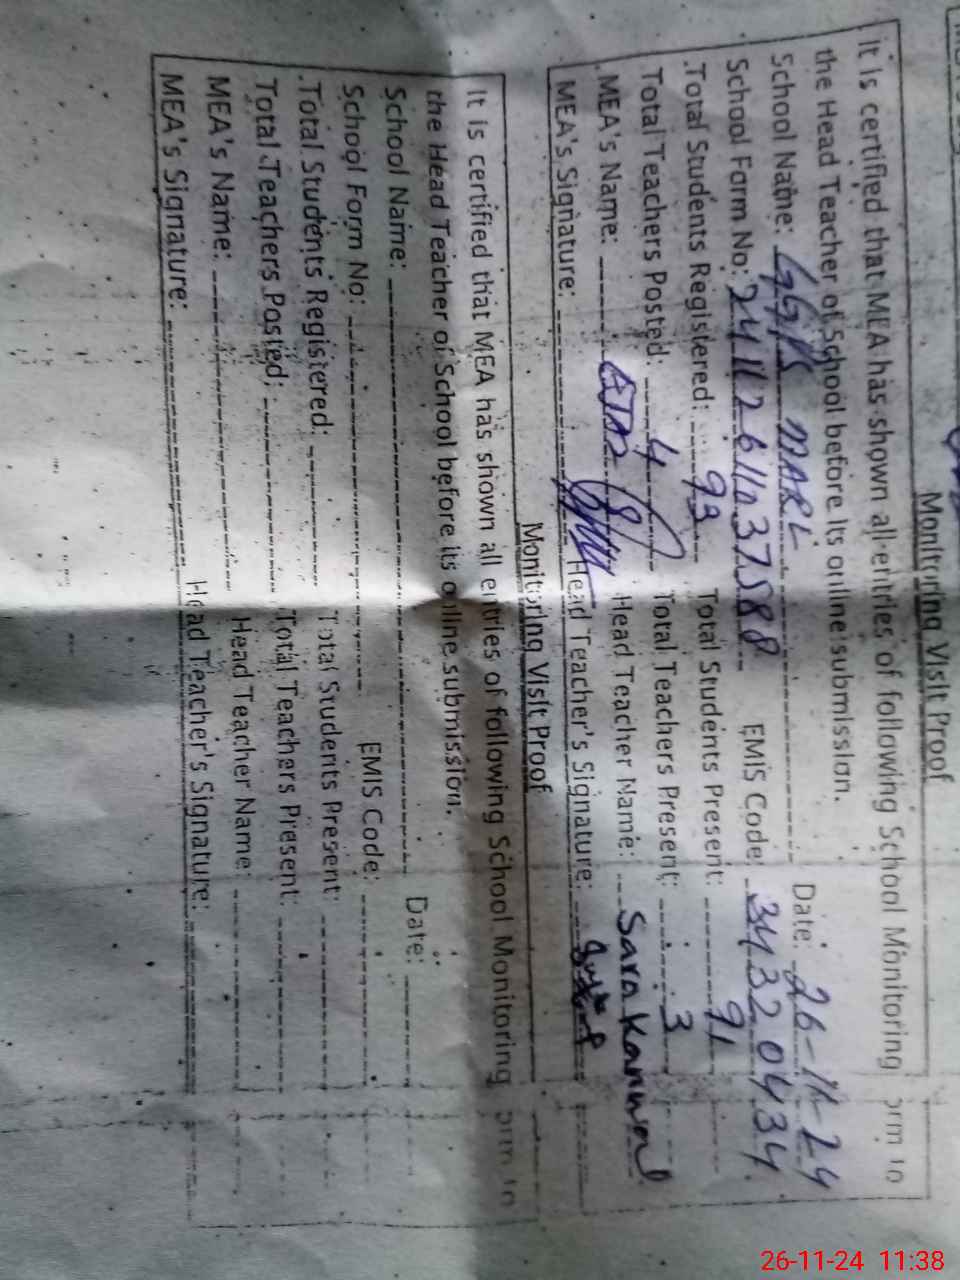 Monitoring Visit Proof
It is certified that MEA has shown all entries of following School Monitoring orm to
the Head Teacher of School before its online submission.
School Name: GGPS MARL Date: 26-11-24
School Form No: 241126110 37588 EMIS Code: 34320434
Total Students Registered: 93 Total Students Present: 91
Total Teachers Posted: 4 Total Teachers Present: 3
MEA's Name: Head Teacher Name: Sara Kanwal
MEA's Signature: Head Teacher's Signature:
Monitoring Visit Proof
It is certified that MEA has shown all entries of following School Monitoring orm to
the Head Teacher of School before its online submission.
School Name: Date:
School Form No: EMIS Code:
Total Students Registered: Total Students Present:
Total Teachers Posted: Total Teachers Present:
MEA's Name: Head Teacher Name:
MEA's Signature: Head Teacher's Signature:
26-11-24 11:38